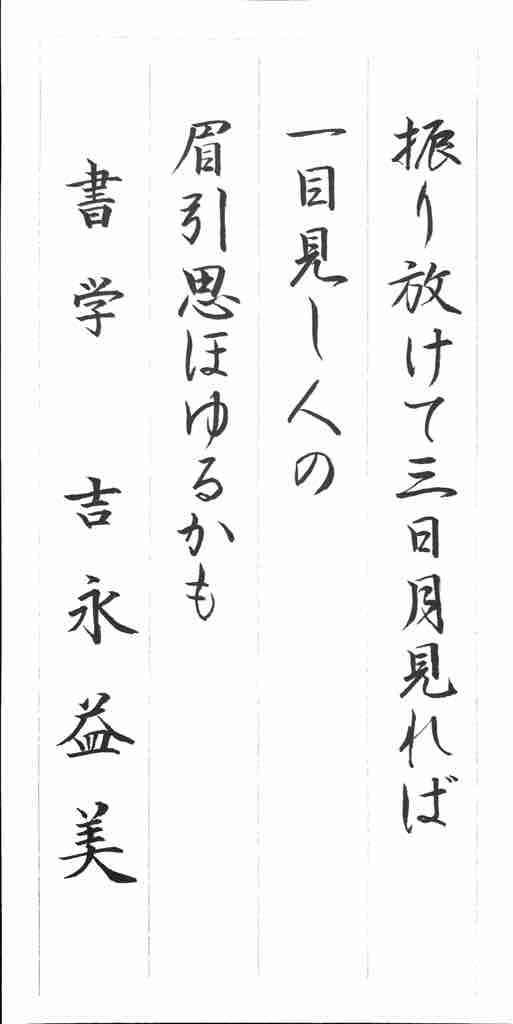 振り放けて三日月見れば
一目見し人の
眉引思ほゆるかも
書学 吉永益美